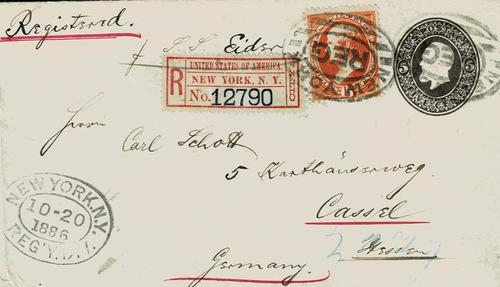 Registered.
S.S. Eider
UNITED STATES OF AMERICA
R
NEW YORK, N. Y.
No. 12790
NEW YORK
REG'
Herrn
Carl Schott
5 Karthäuserweg.
Cassel
Hessen
Germany.
NEW YORK. N.Y.
10-20
1886
REG'Y. D.